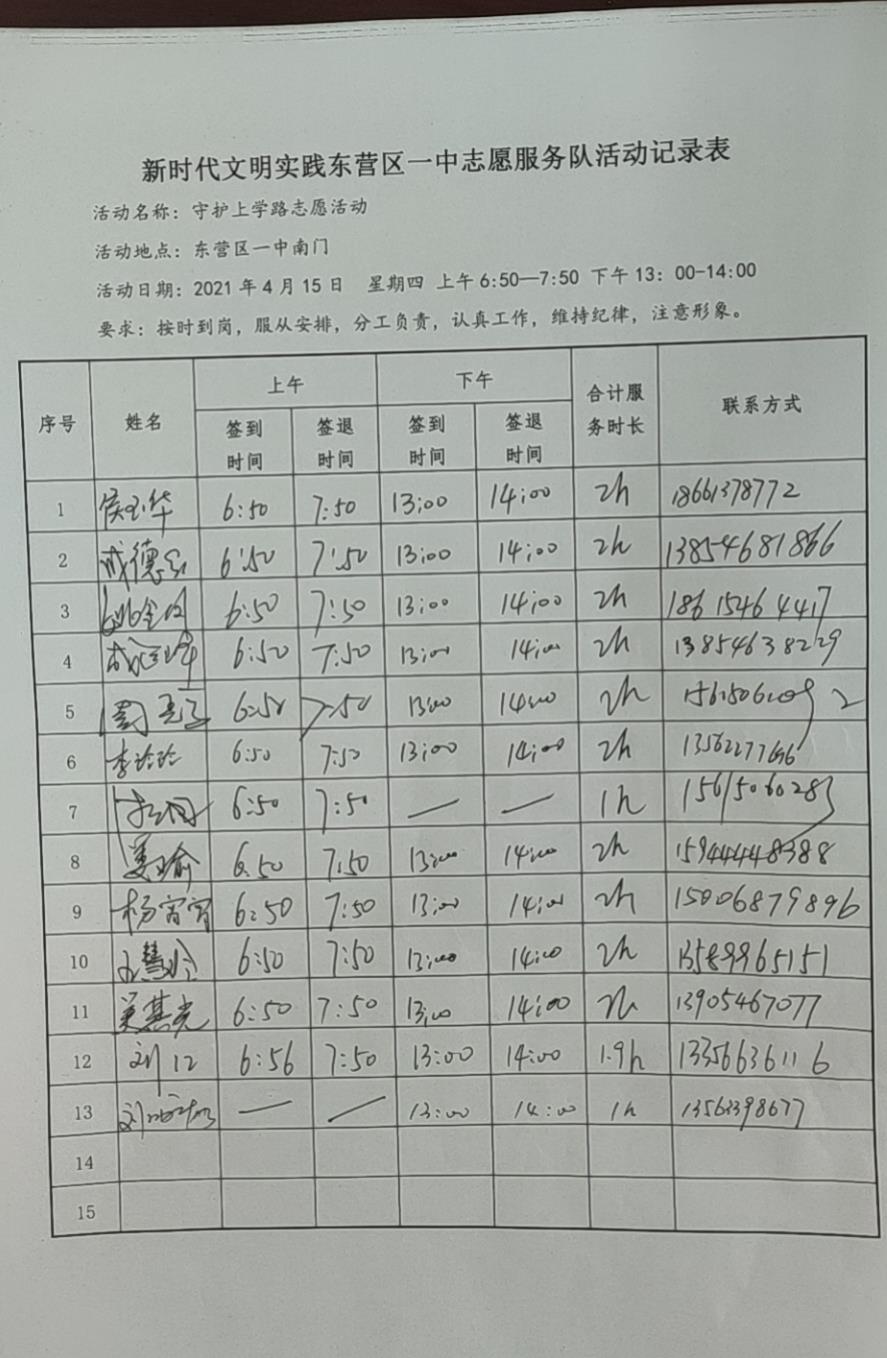 新时代文明实践东营区一中志愿服务队活动记录表
活动名称：守护上学路志愿活动
活动地点：东营区一中南门
活动日期：2021 年 4 月 15 日 星期四 上午 6:50—7:50 下午 13：00-14:00
要求：按时到岗，服从安排，分工负责，认真工作，维持纪律，注意形象。
序号 姓名 上午 下午 合计服务时长 联系方式
签到时间 签退时间 签到时间 签退时间
1 6:50 7:50 13:00 14:00 2h 18661378772
2 6:50 7:50 13:00 14:00 2h 13854681866
3 6:50 7:50 13:00 14:00 2h 18615464417
4 6:50 7:50 13:00 14:00 2h 13854638229
5 6:50 7:50 13:00 14:00 2h
6 李玲玲 6:50 7:50 13:00 14:00 2h
7 6:50 7:50 — — 1h
8 姜瑜 6.50 7:50 13:00 14:00 2h 15944448388
9 杨宵宵 6:50 7:50 13:00 14:00 2h 15006879896
10 6:50 7:50 13:00 14:00 2h 13589965151
11 吴其光 6:50 7:50 13:00 14:00 2h 13905467077
12 6:56 7:50 13:00 14:00 1.9h 13356636116
13 — — 13:00 14:00 1h 13563398677
14
15